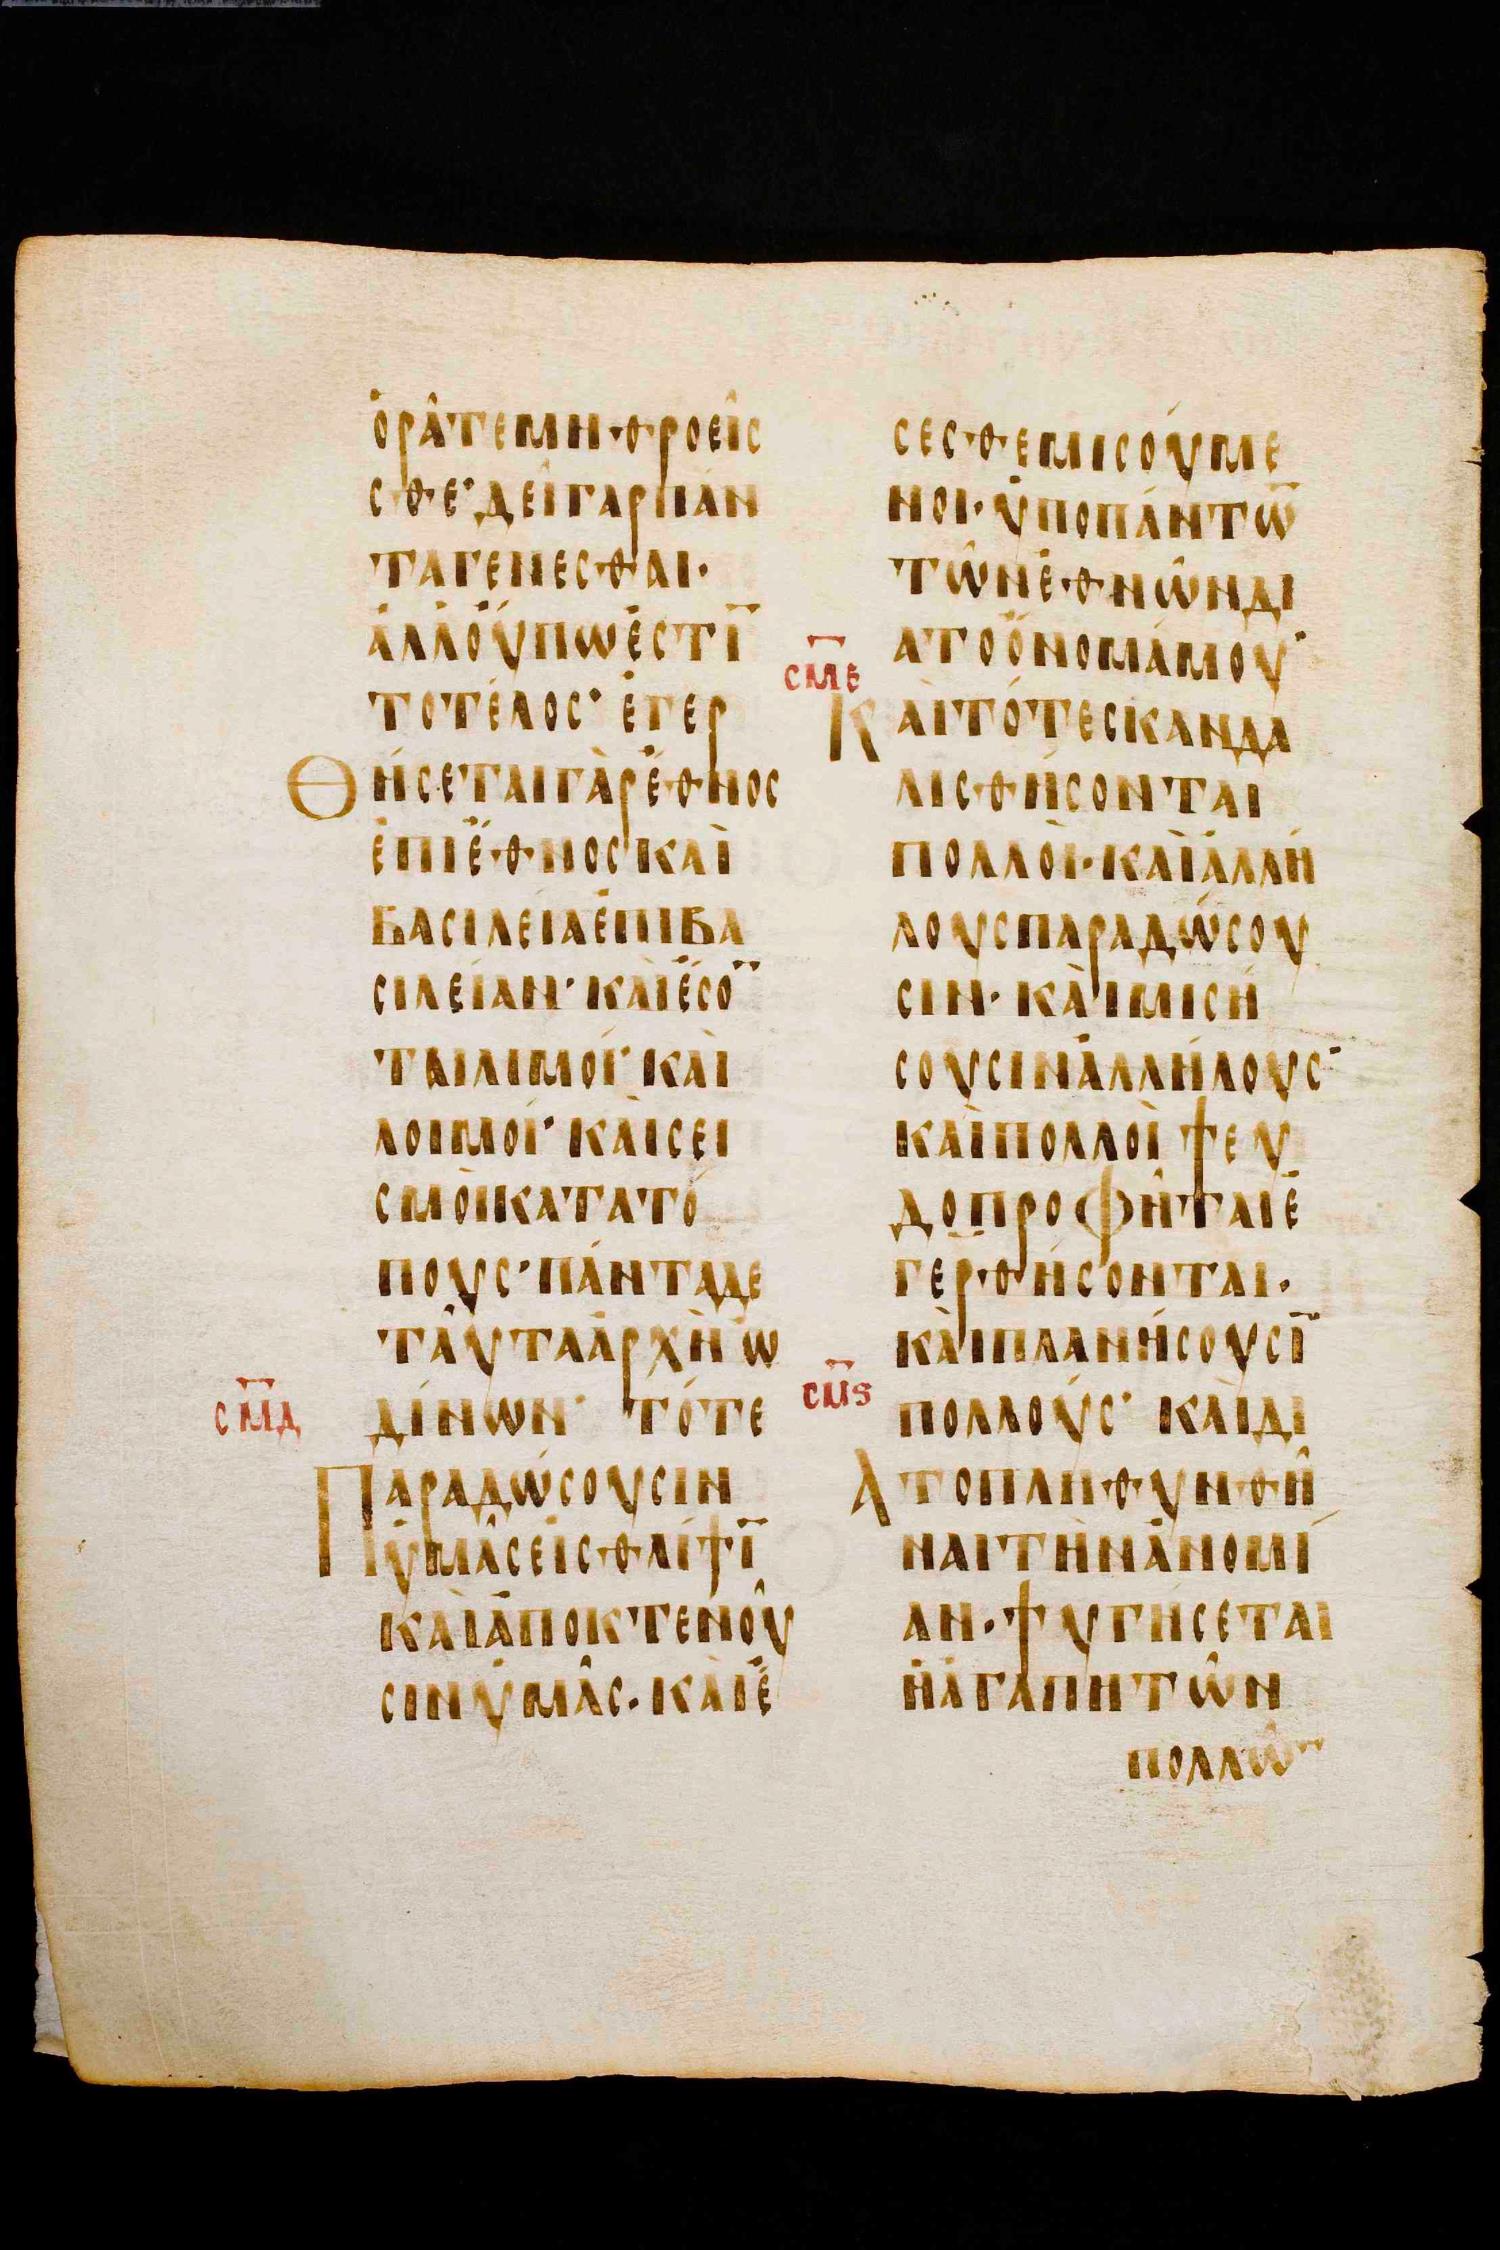 ὁρᾶτε μὴ θροεῖς
σθε· δεῖ γαρ πάν
τα γενεσθαι·
ἀλλ οὔπω ἐστῑ
το τέλος· ἐγερ
Θήσεται γὰρ ἔθνος
ἐπι ἔθνος καὶ
βασιλεία ἐπι βα
σιλείαν· καὶ ἔσο̄
ται λιμοί· καὶ
λοιμοί· καὶ σει
σμοὶ κατα τό
πους· πάντα δε
ταῦτα ἀρχὴ ὠ
σ̅μ̅δ
δίνων· τότε
Παραδώσουσιν
ὑμᾶς εἰς θλίψῑ
καὶ ἀποκτενοῦ
σιν ὑμᾶς· καὶ ἔ
σεσθε μισούμε
νοι· ὑπο πάντω̄
τῶν ἐθνῶν δι
α το ὄνομά μου·
σ̅μ̅ε
Καὶ τότε σκανδα
λισθήσονται
πολλοὶ· καὶ ἀλλή
λους παραδώσου
σιν· καὶ μισή
σουσιν ἀλλήλους·
καὶ πολλοὶ ψευ
δοπροφῆται ἐ
γερθήσονται·
καὶ πλανήσουσῑ
σ̅μ̅ϛ
πολλούς· καὶ δι
Α το πληθυνθῆ
ναι τὴν ἀνομί
αν· ψυγήσεται
ἡ ἀγάπη τῶν
πολλῶ̄